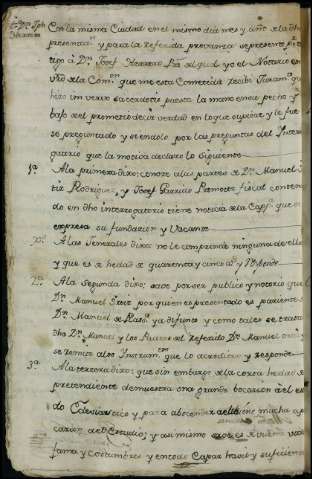 Dn. Jph
Herrera
En la misma Ciudad en el mismo dia mes y año a la dha
presentacn. y para la referida provanza se presento por tes
tigo a Dn. Josef Herrero al qual yo el Notario en
vrd. de la Comon. que me esta Conferida recibi Juramto. que
hizo in verbo sacerdotis puesta la mano en su pecho y
bajo de el prometio decir verdad en lo que supiese y le fue
se preguntado y siendolo por las preguntas del Inter
rogatorio que la motiva declaro lo siguiente
1a. A la primera dixo: conoce a las partes de Dn. Manuel
tiz Rodriguez, y Josef Garrido Promotor fiscal conteni
do en dho interrogatorio tiene noticia de la Capp. que
expresa su fundacion y Vacante
A las Generales dixo: no le comprende ninguna de ellas
y que es de hedad de quarenta y cinco as. y Respde.
2a. A la Segunda dixo: save por ser publico y notorio que
Dn. Manuel Ortiz por quien es presentado es pariente
Dn. Manuel de ya difunto y como tales se trata
dho Dn. Manuel y los Padres del referido Dn. Manuel
se remite a los Instrumtos. que lo acreditan y responde
3a. A la tercera dixo: que sin embargo de la corta hedad
pretendiente demuestra una grande bocacion a el es
do Eclesiastico y para ascender a el tiene mucha ap
cacion a el Estudio; y asimismo que es de vida
fama y costumbres y en todo Capaz havil y suficiente